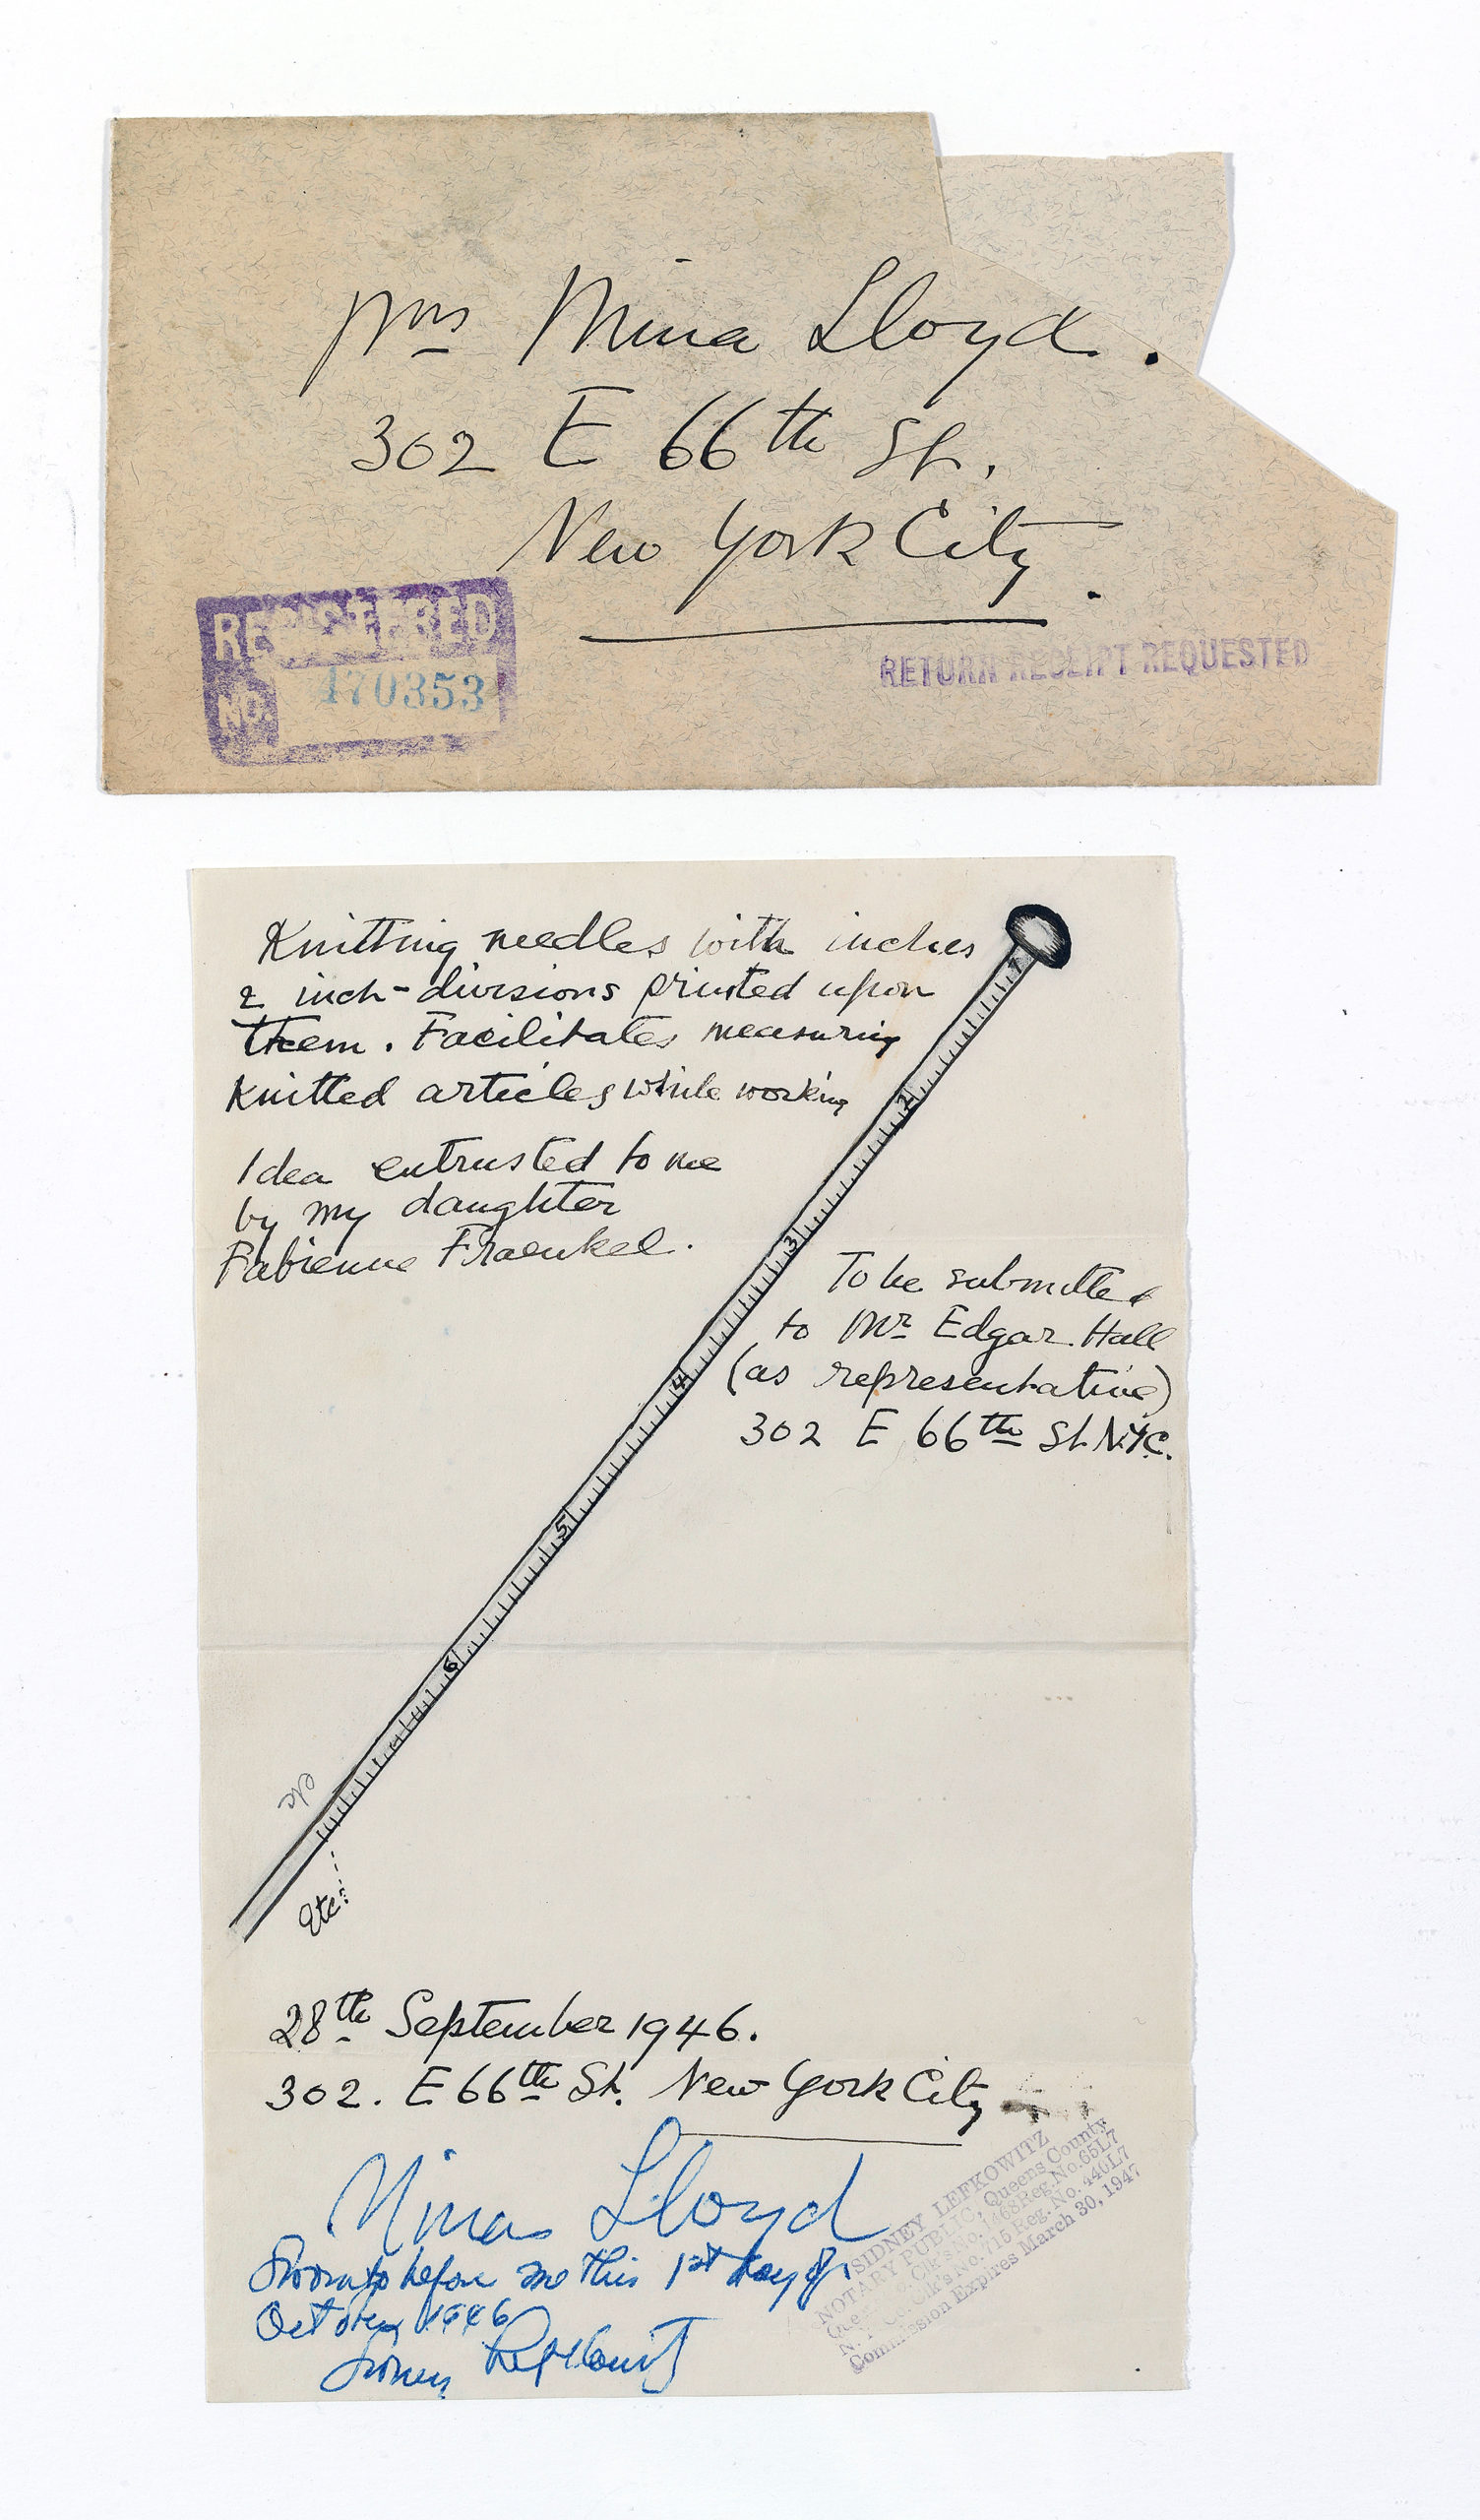 Mrs Mina Lloyd.
302 E 66th St.
New York City.
REGISTERED
NO. 470353
RETURN RECEIPT REQUESTED
Knitting needles with inches
& inch-divisions printed upon
them. Facilitates measuring
Knitted articles while working
Idea entrusted to me
by my daughter
Fabienne Fraenkel.
To be submitted
to Mr Edgar Hall
(as representative)
302 E 66th St. N.Y.C.
1
2
3
4
5
6
etc
Etc.
28th September 1946.
302. E 66th St. New York City
Mina Lloyd
Sworn to before me this 1st day of
October 1946
Sidney Lefkowitz
SIDNEY LEFKOWITZ
NOTARY PUBLIC, Queens County
Clk's No. 1468 Reg. No. 65L7
Clk's No. 715 Reg. No. 440L7
Commission Expires March 30, 1947